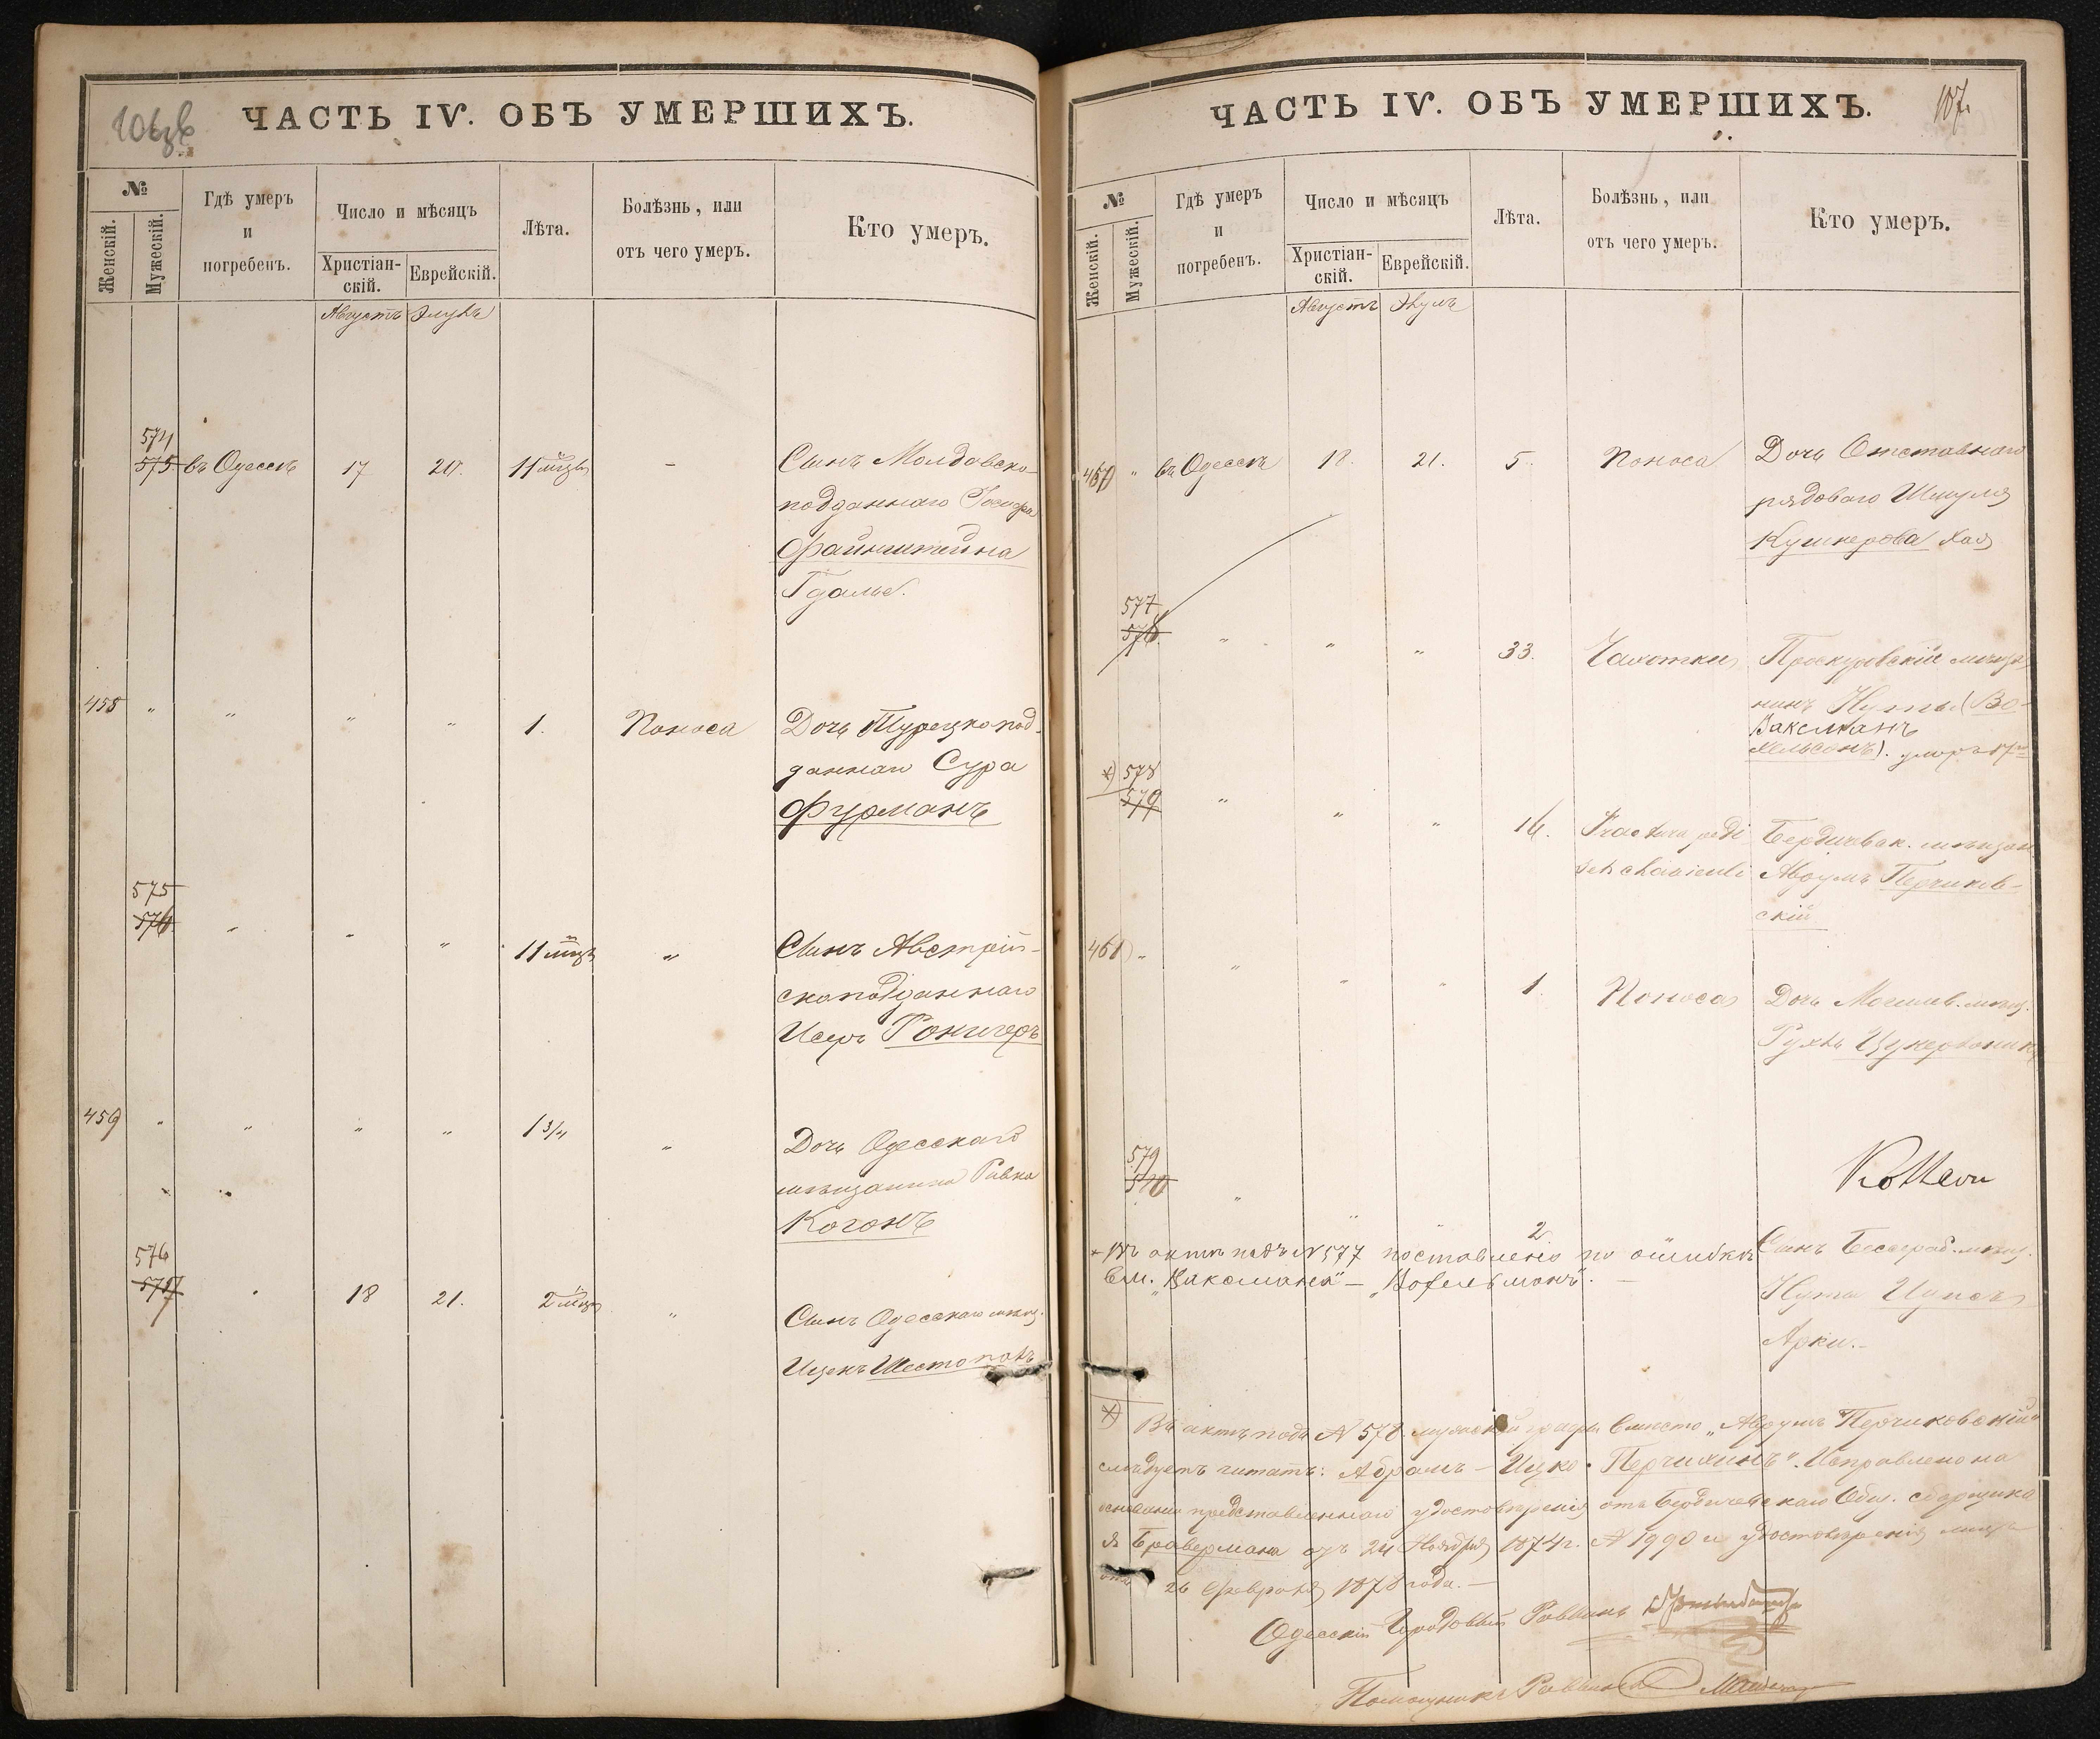 106
ЧАСТЬ IV. ОБЪ УМЕРШИХЪ.
№
Женскій.
Мужескій.
Гдѣ умеръ
и
погребенъ.
Число и мѣсяцъ
Христіан-
скій.
Еврейскій.
Лѣта.
Болѣзнь, или
отъ чего умеръ.
Кто умеръ.
Августъ Элулъ
574
575 въ Одессѣ 17 20. 11 мѣц. - Сынъ Молдавско-
подданнаго
Файнштейна
Гдалье.
458 " " " " 1. Поноса Дочь Турецко под-
даннаго Сура
Фурманъ
575
576 " " " 11 мѣц. " Сынъ Австрій-
скоподданнаго
Исеръ Ронигеръ
459 " " " " 1 3/4 " Дочь Одесскаго
мѣщанина Ривка
Коганъ
576
577 " 18 21. 2 мѣц. " Сынъ Одесскаго мѣщ.
Ицекъ Шестопалъ
ЧАСТЬ IV. ОБЪ УМЕРШИХЪ.
107.
№
Женскій.
Мужескій.
Гдѣ умеръ
и
погребенъ.
Число и мѣсяцъ
Христіан-
скій.
Еврейскій.
Лѣта.
Болѣзнь, или
отъ чего умеръ.
Кто умеръ.
Августъ Элулъ
460 " въ Одессѣ 18. 21. 5. Поноса Дочь Отставнаго
рядоваго Шмуля
Кушнерова Хая
577
578. " " " 33. Чахотки Проскуровскій мѣща
нинъ Нута (Во-
Ваксманъ
фельсонъ). умеръ 17го
*) 578
579 " " " 16. Fractura pedi Бердичевск. мѣщан
Аврумъ Перчиков-
скій
461 " " " " 1. Поноса Дочь Могилев. мѣщ.
Рухль Цукерваникъ
579
580 " " " 2 Сынъ Бессараб. мѣщ.
Нута
Арки.-
* Въ актѣ подъ N 577 поставлено по ошибкѣ
вм. „Ваксмана" — „Вофельманъ". —
*) Въ актѣ подъ N 578 мужской графы вмѣсто „Аврумъ Перчиковскій"
слѣдуетъ читать: Абрамъ - Ицко - Перчихинъ". Исправлено на
основаніи представленнаго удостовѣренія отъ Бердичевскаго Общ. сборщика
Бравермана отъ 24 Ноября 1874 г. N 1990 и удостовѣренія
26 Февраля 1878 года. —
Одесскій Городовый Раввинъ
Помощникъ Раввина